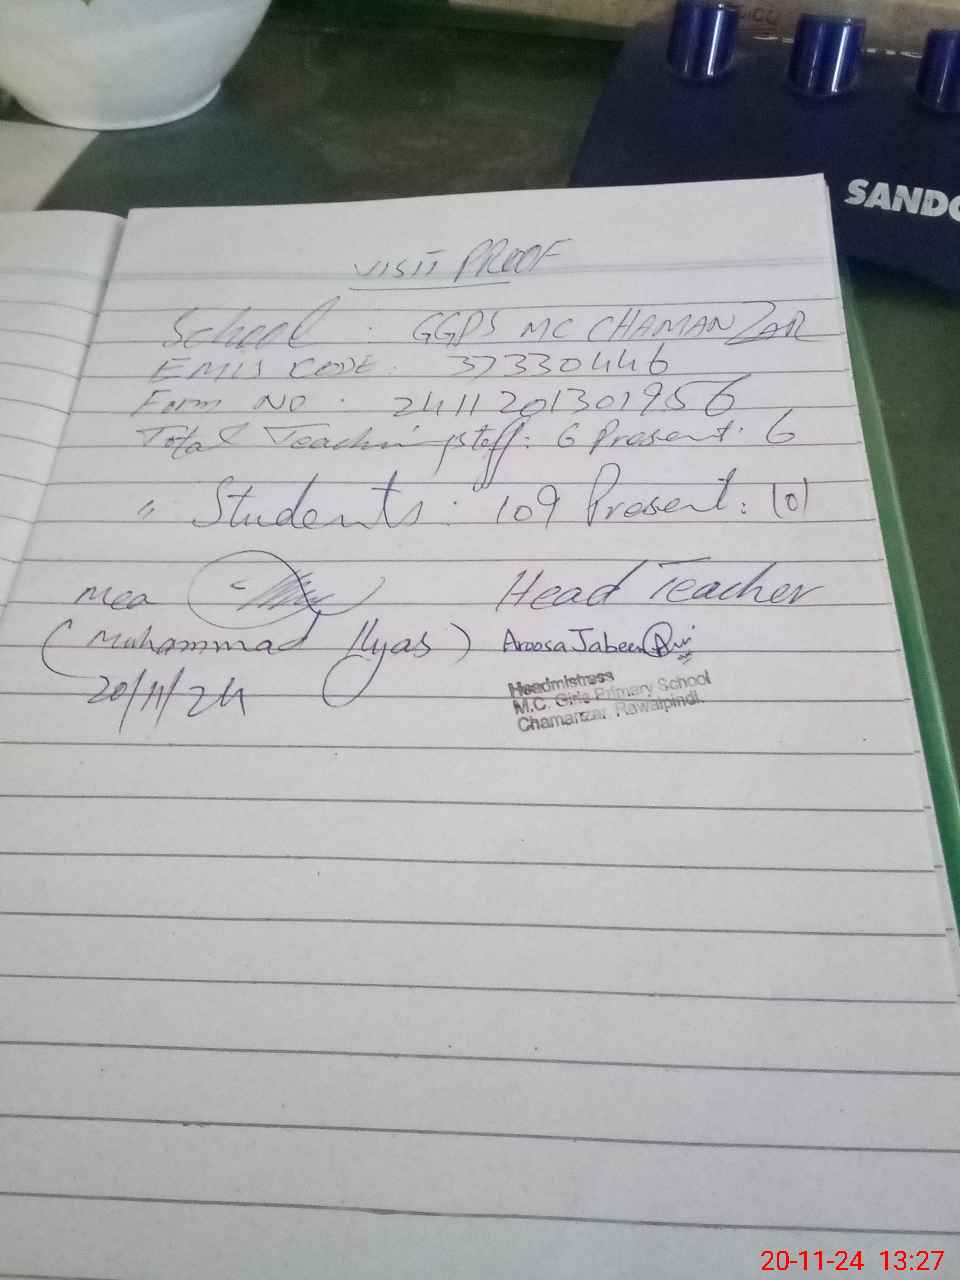 SANDO
VISIT PROOF
School : GGPS MC CHAMANZAR
EMIS CODE. 37330446
Form NO . 2411201301956
Total Teaching staff: 6 Present: 6
" Students : 109 Present: 101
Mea
(Muhammad Ilyas)
20/11/24
Head Teacher
Aroosa Jabeen
Headmistress
M.C. Girls Primary School
Chamanzar Rawalpindi.
20-11-24 13:27